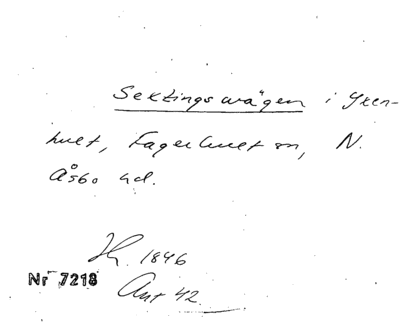 Sextingsvägen i Yxen-
hult, Fagerhult sn, N.
Åsbo hd.
1846
Nr 7218
Ant 42